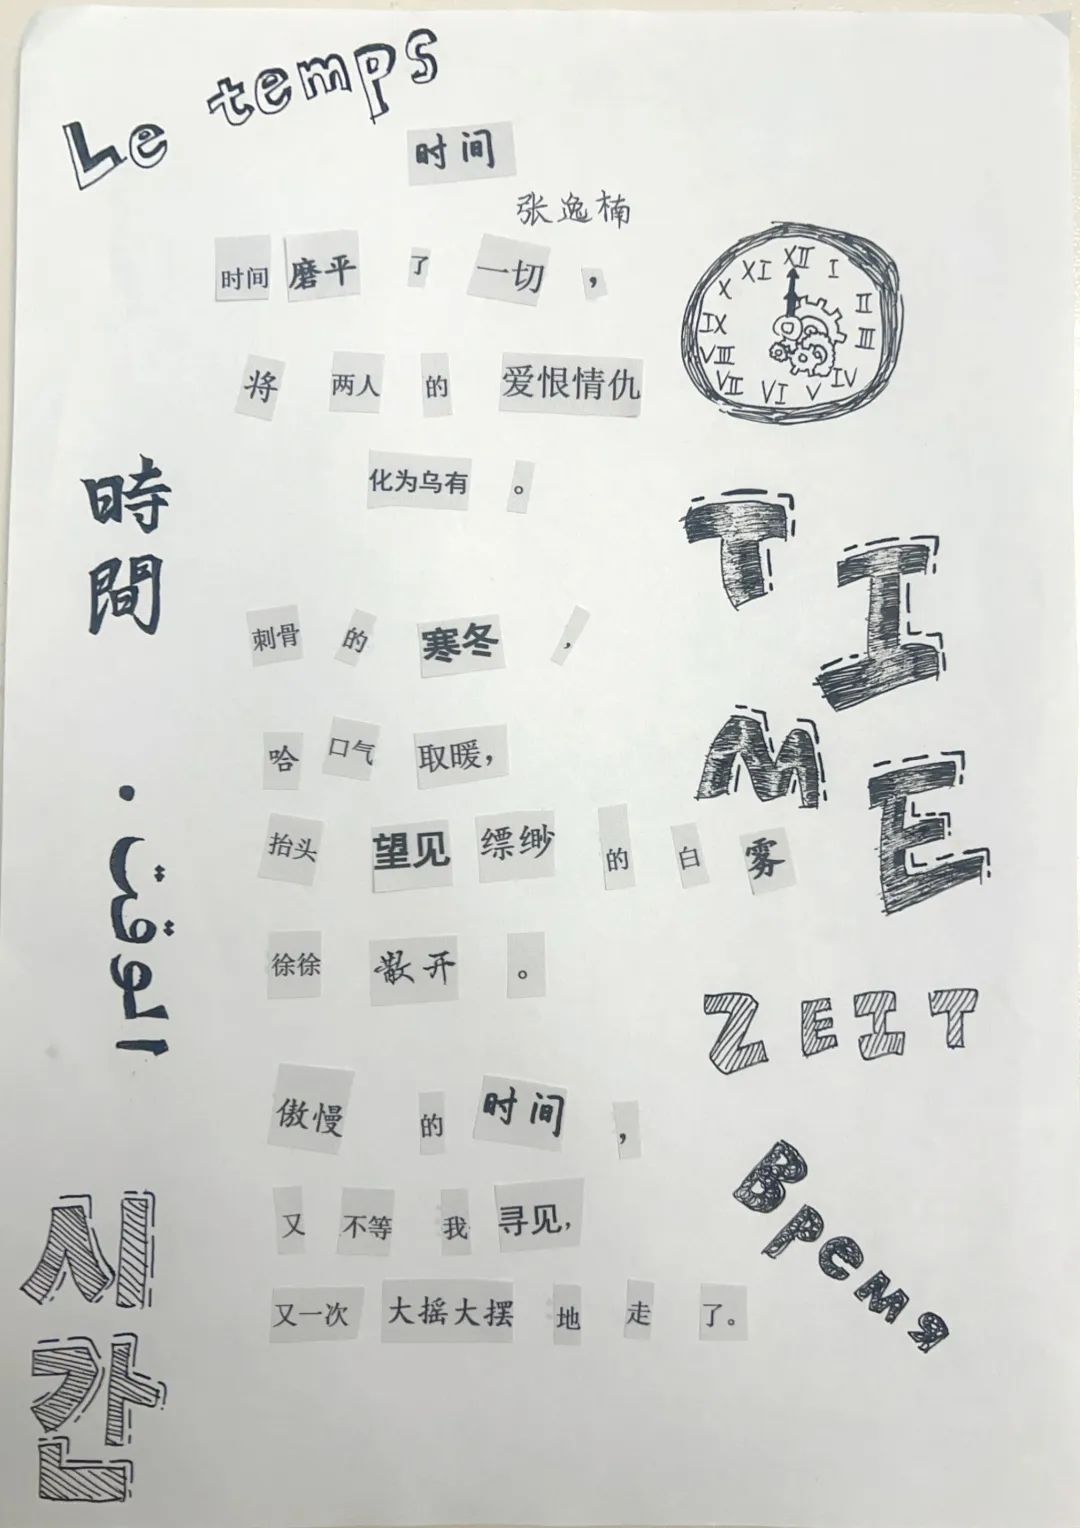 Le temps
时间
张逸楠
时间磨平了一切，
将两人的爱恨情仇
化为乌有。
刺骨的寒冬，
哈口气取暖，
抬头望见缥缈的白雾
徐徐散开。
傲慢的时间，
又不等我寻见，
又一次大摇大摆地走了。
XII
I
II
III
IV
V
VI
VII
VIII
IX
X
XI
時間
الوقت.
시간
TIME
ZEIT
Время